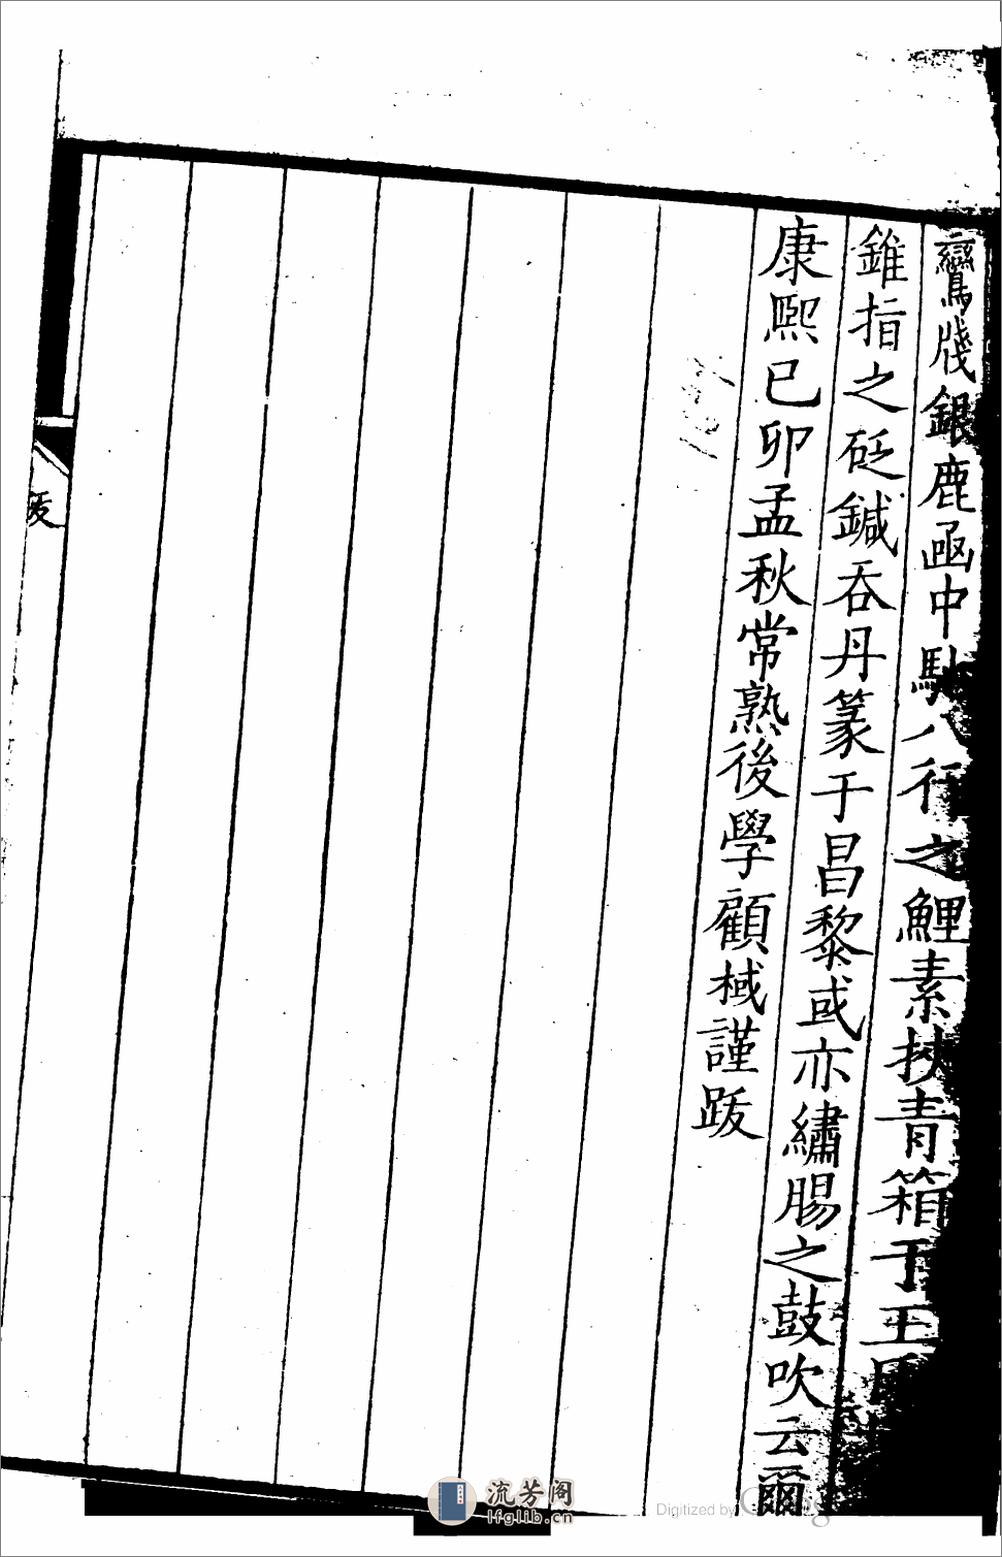 鸞牋銀鹿凾中馱八行之鯉素挾青箱于王
錐指之砭鍼吞丹篆于昌黎或亦繡腸之鼓吹云爾
康熙己卯孟秋常熟後學顧棫謹跋
跋
流芳阁
lfglib.cn
Digitized by